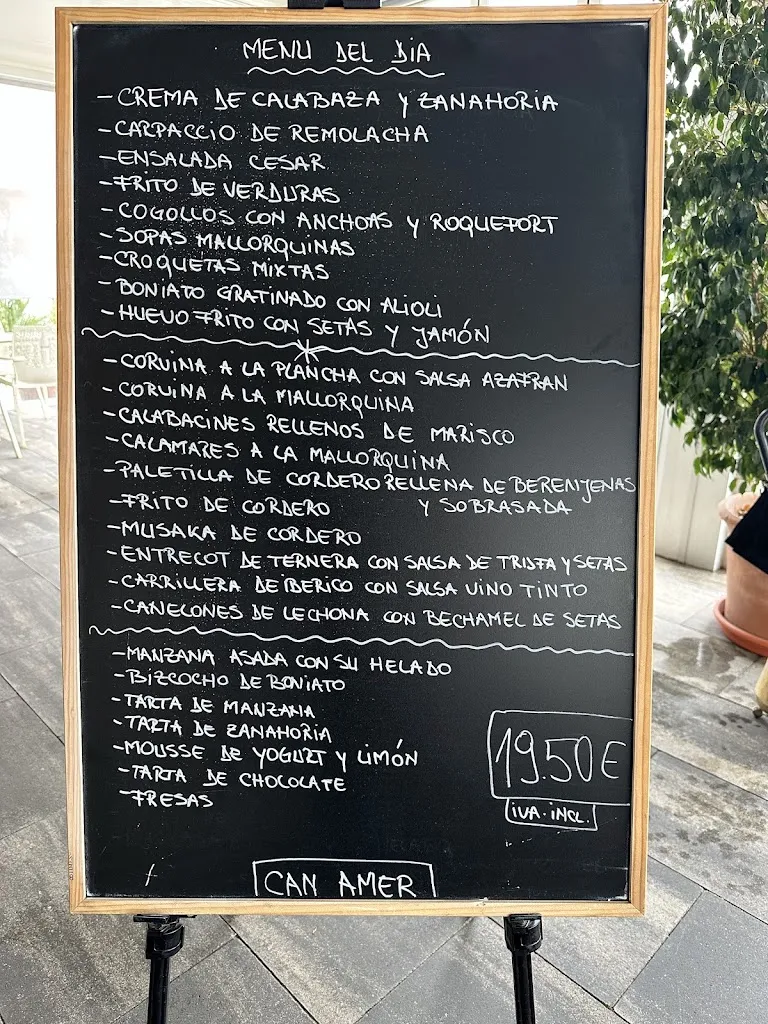 MENU DEL DIA
- CREMA DE CALABAZA Y ZANAHORIA
- CARPACCIO DE REMOLACHA
- ENSALADA CESAR
- FRITO DE VERDURAS
- COGOLLOS CON ANCHOAS Y ROQUEFORT
- SOPAS MALLORQUINAS
- CROQUETAS MIXTAS
- BONIATO GRATINADO CON ALIOLI
- HUEVO FRITO CON SETAS Y JAMÓN
- CORVINA A LA PLANCHA CON SALSA AZAFRAN
- CORVINA A LA MALLORQUINA
- CALABACINES RELLENOS DE MARISCO
- CALAMARES A LA MALLORQUINA
- PALETILLA DE CORDERO RELLENA DE BERENJENAS
Y SOBRASADA
- FRITO DE CORDERO
- MUSAKA DE CORDERO
- ENTRECOT DE TERNERA CON SALSA DE TRUFA Y SETAS
- CARRILLERA DE IBERICO CON SALSA VINO TINTO
- CANELONES DE LECHONA CON BECHAMEL DE SETAS
- MANZANA ASADA CON SU HELADO
- BIZCOCHO DE BONIATO
- TARTA DE MANZANA
- TARTA DE ZANAHORIA
- MOUSSE DE YOGURT Y LIMÓN
- TARTA DE CHOCOLATE
- FRESAS
19.50€
IVA. INCL.
CAN AMER